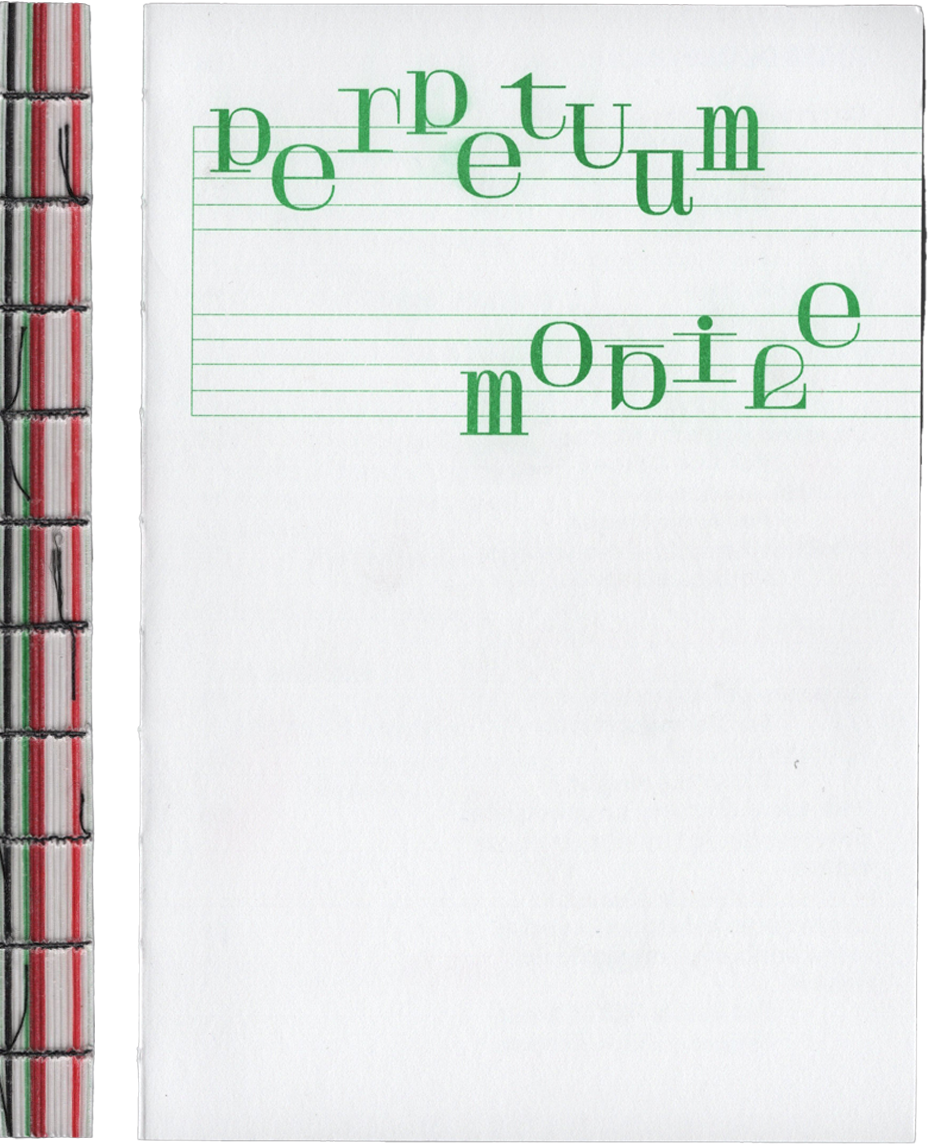 perpetuum
mobile